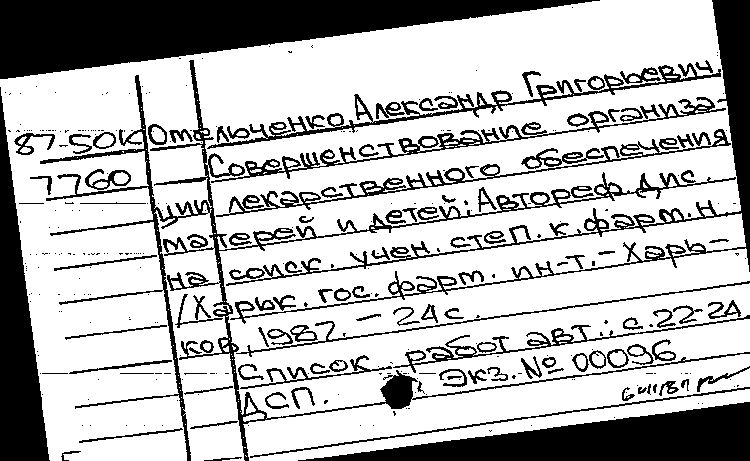 87-50К Отельченко, Александр Григорьевич.
7760 Совершенствование организа-
ции лекарственного обеспечения
матерей и детей: Автореф. дис.
на соиск. учен. степ. к. фарм. н.
/Харьк. гос. фарм. ин-т. - Харь-
ков, 1987. - 24 с.
Список работ авт.: с. 22-24
ДСП. Экз. № 00096.